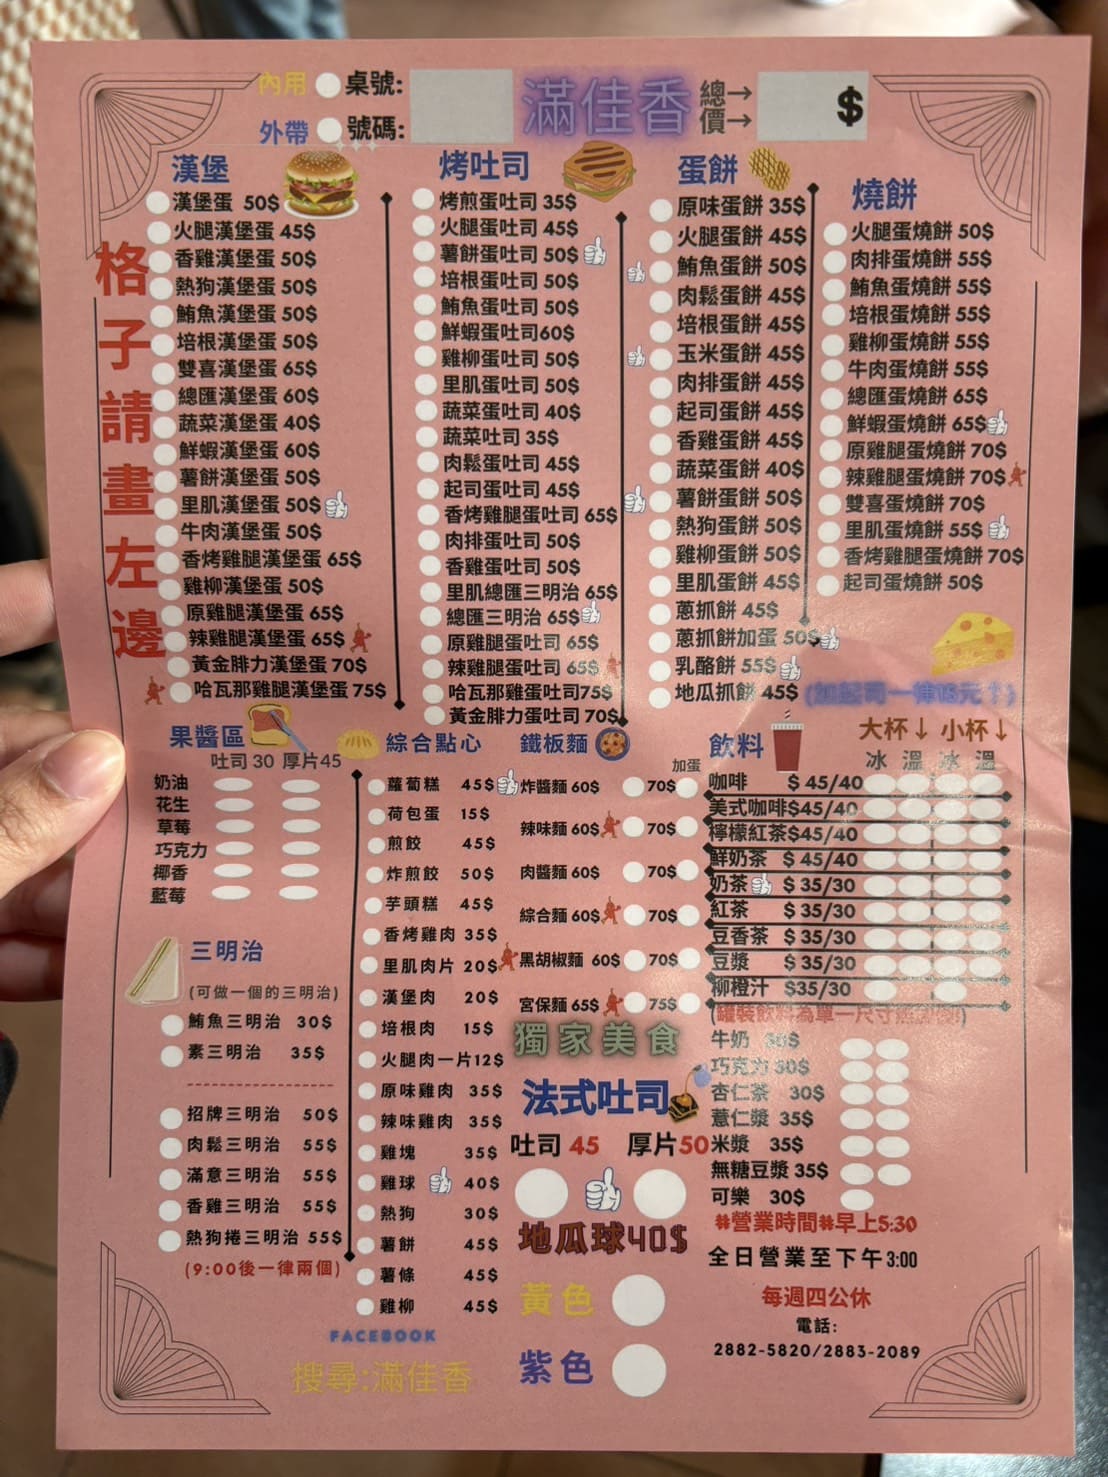 內用 桌號:
外帶 號碼:
滿佳香
總→
價→
$
格子請畫左邊
漢堡
漢堡蛋 50$
火腿漢堡蛋 45$
香雞漢堡蛋 50$
熱狗漢堡蛋 50$
鮪魚漢堡蛋 50$
培根漢堡蛋 50$
雙喜漢堡蛋 65$
總匯漢堡蛋 60$
蔬菜漢堡蛋 40$
鮮蝦漢堡蛋 60$
薯餅漢堡蛋 50$
里肌漢堡蛋 50$
牛肉漢堡蛋 50$
香烤雞腿漢堡蛋 65$
雞柳漢堡蛋 50$
原雞腿漢堡蛋 65$
辣雞腿漢堡蛋 65$
黃金腓力漢堡蛋 70$
哈瓦那雞腿漢堡蛋 75$
烤吐司
烤煎蛋吐司 35$
火腿蛋吐司 45$
薯餅蛋吐司 50$
培根蛋吐司 50$
鮪魚蛋吐司 50$
鮮蝦蛋吐司60$
雞柳蛋吐司 50$
里肌蛋吐司 50$
蔬菜蛋吐司 40$
蔬菜吐司 35$
肉鬆蛋吐司 45$
起司蛋吐司 45$
香烤雞腿蛋吐司 65$
肉排蛋吐司 50$
香雞蛋吐司 50$
里肌總匯三明治 65$
總匯三明治 65$
原雞腿蛋吐司 65$
辣雞腿蛋吐司 65$
哈瓦那雞蛋吐司75$
黃金腓力蛋吐司 70$
蛋餅
原味蛋餅 35$
火腿蛋餅 45$
鮪魚蛋餅 50$
肉鬆蛋餅 45$
培根蛋餅 45$
玉米蛋餅 45$
肉排蛋餅 45$
起司蛋餅 45$
香雞蛋餅 45$
蔬菜蛋餅 40$
薯餅蛋餅 50$
熱狗蛋餅 50$
雞柳蛋餅 50$
里肌蛋餅 45$
蔥抓餅 45$
蔥抓餅加蛋 50$
乳酪餅 55$
地瓜抓餅 45$
燒餅
火腿蛋燒餅 50$
肉排蛋燒餅 55$
鮪魚蛋燒餅 55$
培根蛋燒餅 55$
雞柳蛋燒餅 55$
牛肉蛋燒餅 55$
總匯蛋燒餅 65$
鮮蝦蛋燒餅 65$
原雞腿蛋燒餅 70$
辣雞腿蛋燒餅 70$
雙喜蛋燒餅 70$
里肌蛋燒餅 55$
香烤雞腿蛋燒餅 70$
起司蛋燒餅 50$
果醬區
吐司 30 厚片45
奶油
花生
草莓
巧克力
椰香
藍莓
三明治
(可做一個的三明治)
鮪魚三明治 30$
素三明治 35$
招牌三明治 50$
肉鬆三明治 55$
滿意三明治 55$
香雞三明治 55$
熱狗捲三明治 55$
(9:00後一律兩個)
綜合點心
蘿蔔糕 45$
荷包蛋 15$
煎餃 45$
炸煎餃 50$
芋頭糕 45$
香烤雞肉 35$
里肌肉片 20$
漢堡肉 20$
培根肉 15$
火腿肉一片12$
原味雞肉 35$
辣味雞肉 35$
雞塊 35$
雞球 40$
熱狗 30$
薯餅 45$
薯條 45$
雞柳 45$
FACEBOOK
搜尋:滿佳香
鐵板麵
加蛋
炸醬麵 60$ 70$
辣味麵 60$ 70$
肉醬麵 60$ 70$
綜合麵 60$ 70$
黑胡椒麵 60$ 70$
宮保麵 65$ 75$
獨家美食
法式吐司
吐司 45 厚片50
地瓜球40$
黃色
紫色
飲料
大杯↓ 小杯↓
冰 溫 冰 溫
咖啡 $ 45/40
美式咖啡$45/40
檸檬紅茶$45/40
鮮奶茶 $ 45/40
奶茶 $ 35/30
紅茶 $ 35/30
豆香茶 $ 35/30
豆漿 $ 35/30
柳橙汁 $35/30
牛奶
巧克力 30$
杏仁茶 30$
薏仁漿 35$
米漿 35$
無糖豆漿 35$
可樂 30$
#營業時間#早上5:30
全日營業至下午3:00
每週四公休
電話:
2882-5820/2883-2089